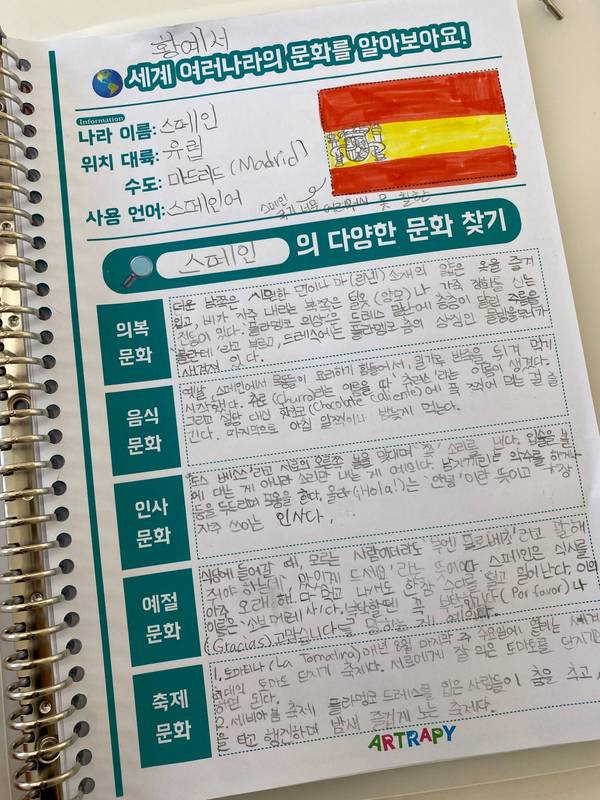 황예서
세계 여러나라의 문화를 알아보아요!
Information
나라 이름: 스페인
위치 대륙: 유럽
수도: 마드리드 (Madrid)
사용 언어: 스페인어
스페인
국기 너무 어려워서 못 칠함
스페인 의 다양한 문화 찾기
의복 문화
더운 남쪽은 시원한 면이나 마(린넨) 소재의 얇은 옷을 즐겨
입고, 비가 자주 내리는 북쪽은 털옷(양모)나 가죽 장화를 신는
전통이 있다. 플라멩코 의상은 드레스 밑단에 층층이 달린 주름을
라고 부르고, 드레스에는 플라멩코 춤의 상징인 물방울무늬가
새겨져 있다.
음식 문화
옛날, 스페인에서 목동이 요리하기 힘들어서, 밀가루 반죽을 튀겨 먹기
시작했다. 추로(Churro)라는 이름을 따 '츄러스'라는 이름이 생겼다.
그리고 설탕 대신 핫초코(Chocolate caliente)에 푹 찍어 먹는 걸 즐
긴다. 마지막으로 아침 일찍이나 밤늦게 먹는다.
인사 문화
'도스 베소스'라고 서로의 오른쪽 볼을 맞대며 '쪽' 소리를 낸다. 입술을 볼
에 대는 게 아니라 소리만 내는 게 예의다. 남자끼리는 악수를 하거나
등을 두드리며 포옹을 한다, 올라(Hola!)는 '안녕'이란 뜻이고 가장
자주 쓰이는 인사다.
예절 문화
식당에 들어갈 때, 모르는 사람이더라도 '부엔 프로베초'라고 말해
줘야 하는데, '맛있게 드세요'라는 뜻이다. 스페인은 식사를
아주 오래 해. 다 먹고 나서도 한참 수다를 떨고 일어난다. 이의
이름은 '소브레메사'다. 부탁할 땐 꼭 (Por favor)나
(Gracias) 고맙습니다를 말하는 게 예의다.
축제 문화
1. 토마티나 (La Tomatina) 매년 8월 마지막 주 수요일에 열리는 세계
최대의 토마토 던지기 축제다. 서로에게 잘 익은 토마토를 던지기만
하면 된다.
2. 세비야 봄 축제 플라멩코 드레스를 입은 사람들이 춤을 추고,
을 타고 행진하며 밤새 즐겁게 노는 축제다.
ARTRAPY